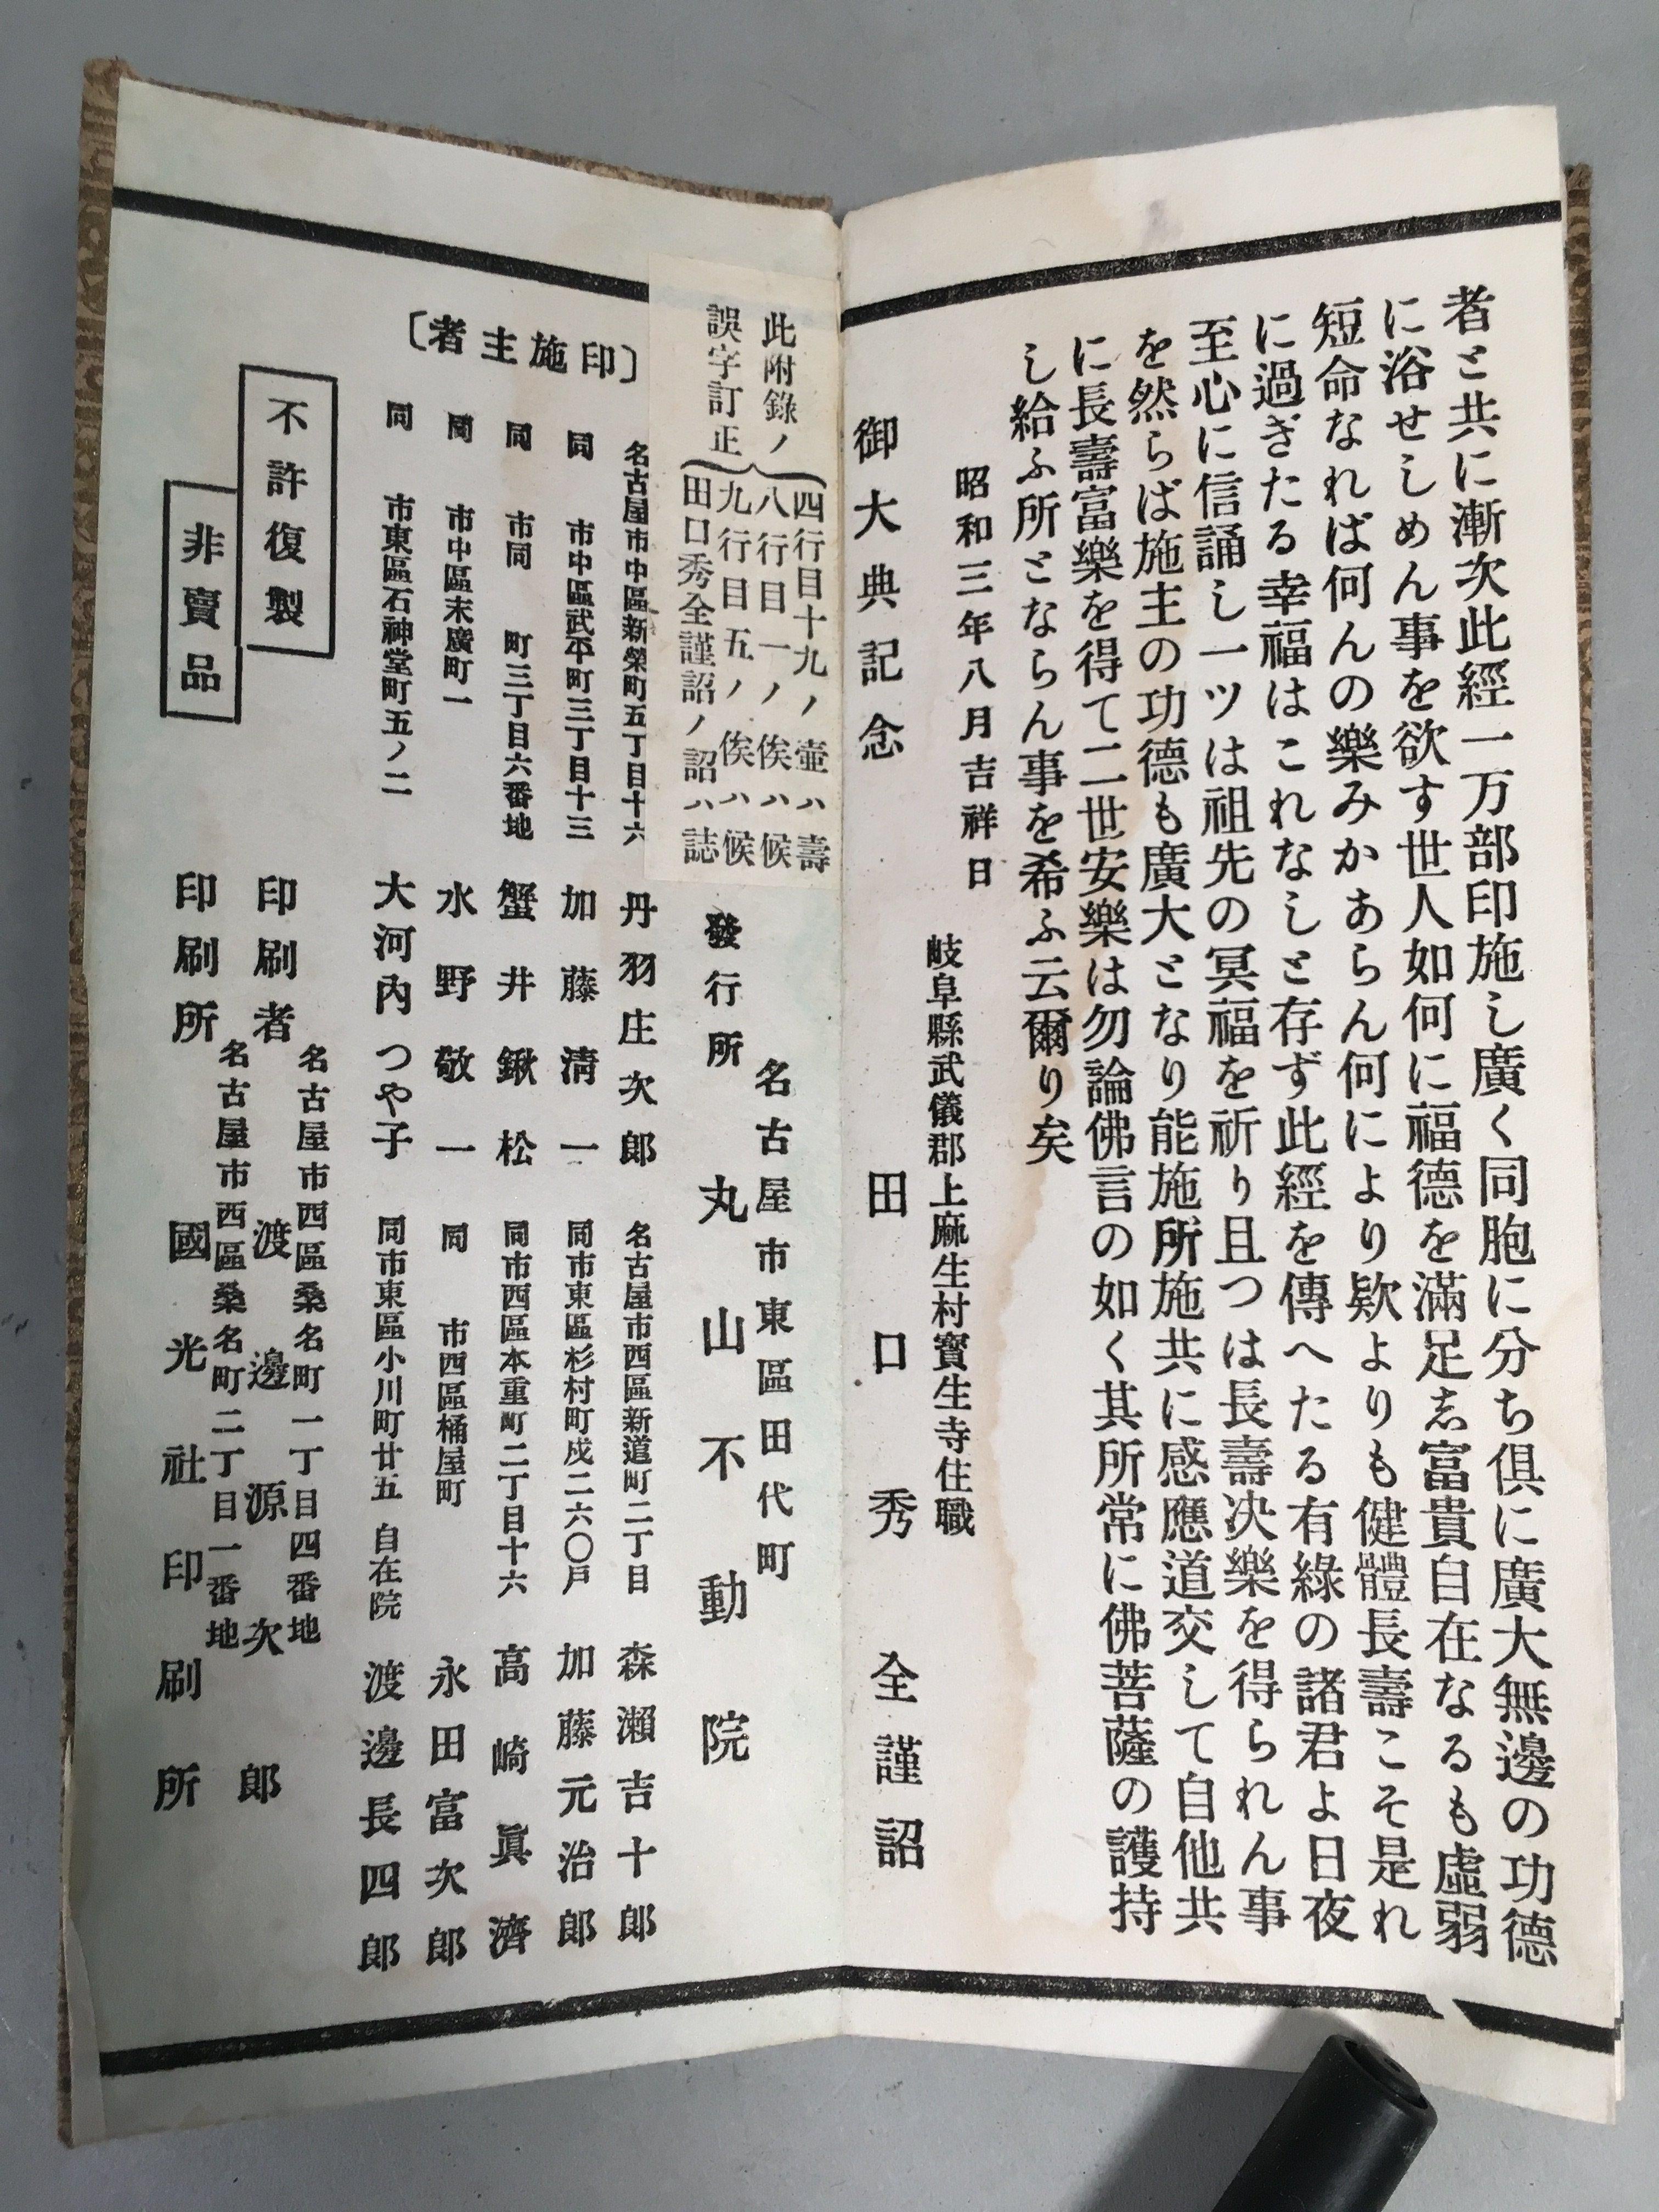 者と共に漸次此經一万部印施し廣く同胞に分ち俱に廣大無邊の功德
に浴せしめん事を欲す世人如何に福德を滿足志富貴自在なるも虛弱
短命なれば何んの樂みかあらん何により欵よりも健體長壽こそ是れ
に過ぎたる幸福はこれなしと存ず此經を傳へたる有緣の諸君よ日夜
至心に信誦し一ツは祖先の冥福を祈り且つは長壽决樂を得られん事
を然らば施主の功德も廣大となり能施所施共に感應道交して自他共
に長壽富樂を得て二世安樂は勿論佛言の如く其所常に佛菩薩の護持
し給ふ所とならん事を希ふ云爾り矣
昭和三年八月吉祥日
岐阜縣武儀郡上麻生村寶生寺住職
御大典記念 田口秀全謹詔
此附錄ノ
誤字訂正
四行目十九ノ壷ハ壽
八行目一ノ俟ハ候
九行目五ノ俟ハ候
田口秀全謹詔ノ詔ハ誌
名古屋市東區田代町
發行所 丸山不動院
〔印施主者〕
名古屋市中區新榮町五丁目十六 丹羽庄次郎 名古屋市西區新道町二丁目 森瀨吉十郎
同 市中區武平町三丁目十三 加藤淸一 同市東區杉村町戍二六〇戶 加藤元治郎
同 市同 町三丁目六番地 蟹井鍬松 同市西區本重町二丁目十六 高崎眞濟
同 市中區末廣町一 水野敬一 同 市西區桶屋町 永田富次郎
同 市東區石神堂町五ノ二 大河內つや子 同市東區小川町廿五 自在院 渡邊長四郎
不許復製
非賣品
名古屋市西區桑名町一丁目四番地
印刷者 渡邊源次郎
名古屋市西區桑名町二丁目一番地
印刷所 國光社印刷所